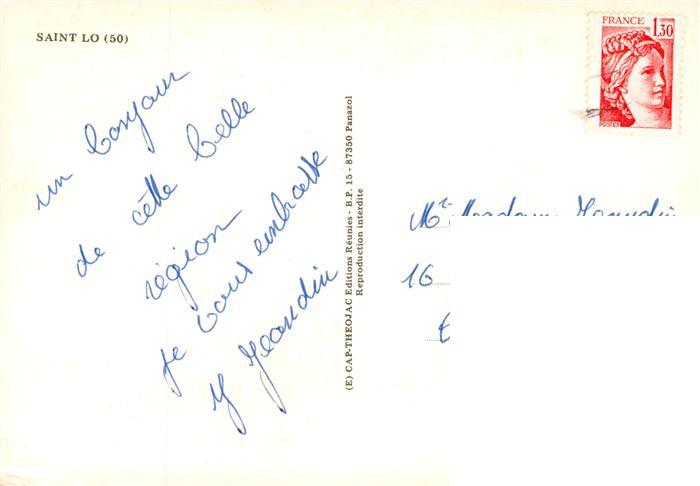 SAINT LO (50)
un bonjour
de cette belle
région
je vous embrasse
Y Jeandin
(E) CAP-THEOJAC Editions Réunies - B.P. 15 - 87350 Panazol
Reproduction interdite
FRANCE
1,30
POSTES
Mr Madame Jeandin
16